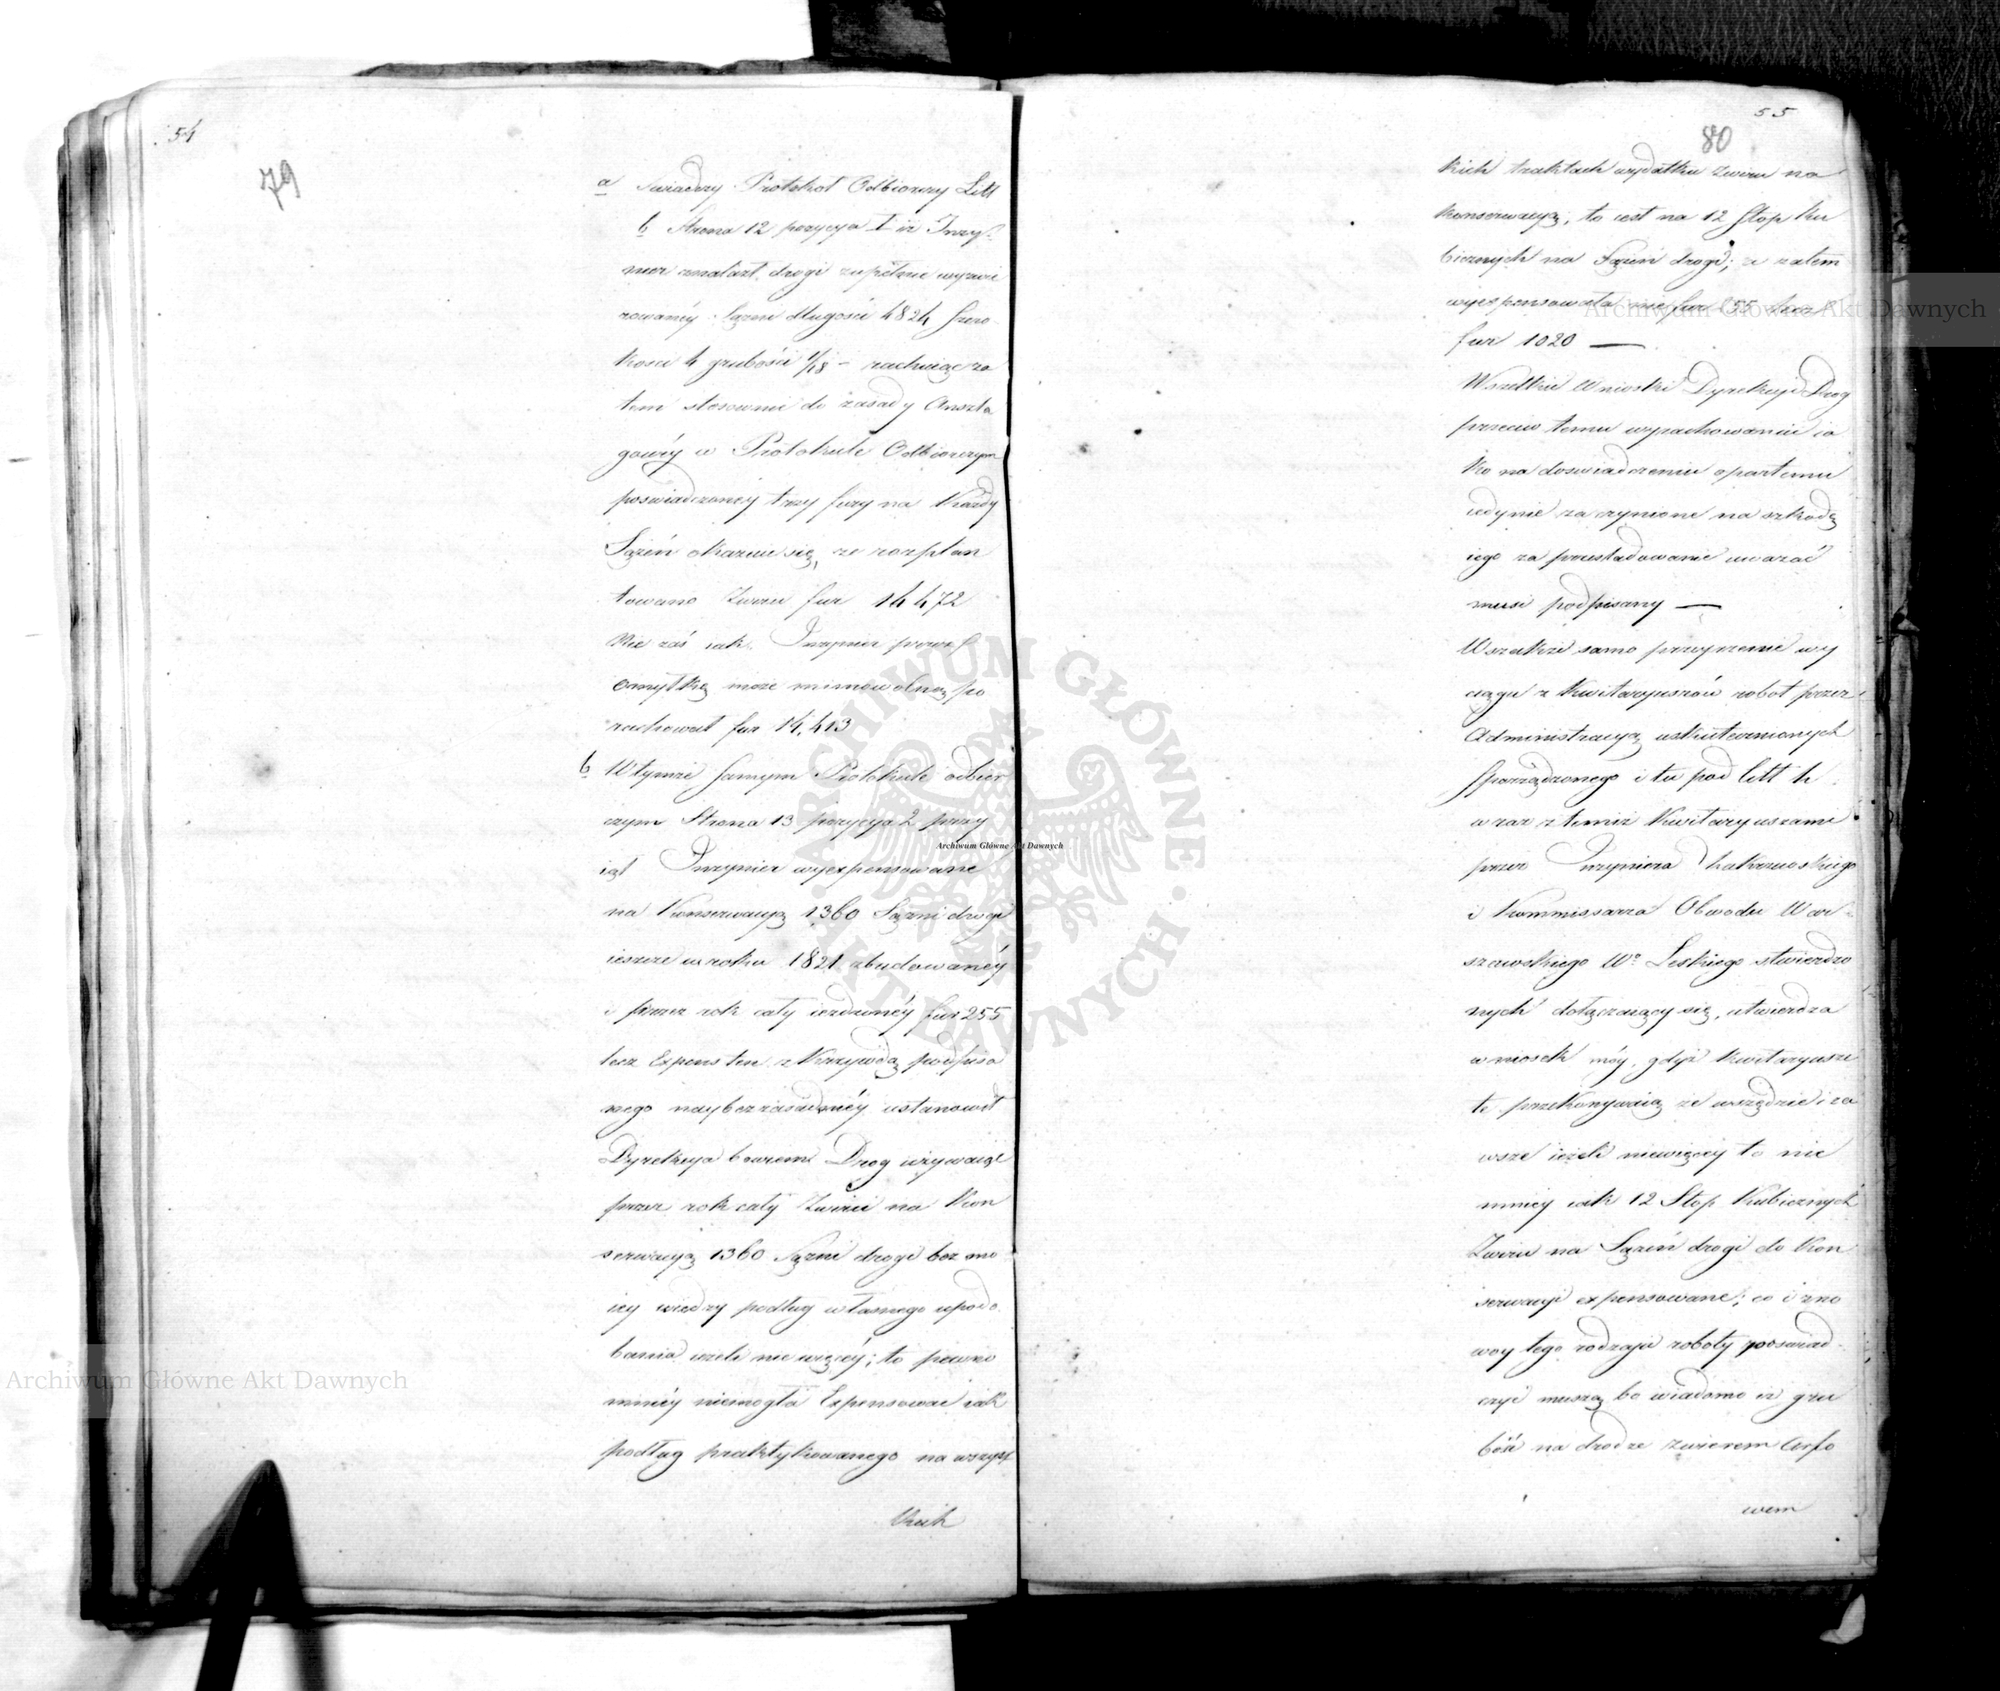 54
79
a świadczy Protokoł Odbiorczy Litt
b Strona 12 pozycya I iż Inży-
nier znalazł drogi zupełnie wyżwi
rowanéy Sążni długości 4824 Szero-
kości 4 grubości 1/18 – rachuiąc za
tem stosownie do zasady Anszla
gowéy w Protokule Odbiorczym
poświadczonéy trzy fury na każdy
Sążeń okazuie się, że rozplan
towano Żwiru fur 14472
Nie zaś iak Inżynier przez
omyłkę może mimowolną po
rachował fur 14,413
b W tymże samym Protokule odbior
czym Strona 13 pozycya 2 przy
iął Inżynier wyexpensowane
na Konserwacyą 1360 Sążni drogi
ieszcze w roku 1821 zbudowanéy
i przez rok cały ieżdżonéy fur 255
lecz Expens ten z Krzywdą podpisa
nego naybezzasadnéy ustanowił
Dyrekcya bowiem Drog używaiąc
przez rok cały Żwiru na Kon
serwacyą 1360 Sążni drogi bez mo
iey wiedzy podług własnego upodo
bania ieżeli nie więcéy; to pewno
mniéy niemogła Expensować iak
podług praktykowanego na wszyst
kich
55
80
kich traktach wydatku Żwiru na
konserwacyą; to iest na 12 Stop ku
bicznych na Sążeń drogi; a zatem
wyexpensowała nie fur 255 lecz
fur 1020 —
Wszelkie Wnioski Dyrekcyi Drog
przeciw temu wyrachowaniu ia
ko na doświadczeniu opartemu
iedynie za czynione na szkodę
iego za prześladowanie uważać
musi podpisany —
Wszakże samo przeyrzenie wy
ciągu z Kwitaryuszów robot przez
Administracyą uskutecznionych
sporządzonego i tu pod Litt h
wraz z temiż Kwitaryuszami
przez Inżyniera Zakrzewskiego
i Kommissarza Obwodu War-
szawskiego Wo Leskiego stwierdzo
nych dołączaiący się, utwierdza
wniosek móy, gdyż Kwitaryusze
te przekonywaią że wszędzie i za
wsze ieżeli niewięcéy to nie
mniéy iak 12 Stop Kubicznych
Żwiru na Sążeń drogi do Kon
serwacyi expensowane; co i zno
woy tego rodzaju roboty poświad-
czyć muszą bo wiadomo iż gru
bość na drodze żwirem
wem
Archiwum Główne Akt Dawnych
Archiwum Główne Akt Dawnych
Archiwum Główne Akt Dawnych
ARCHIWUM GŁÓWNE · AKT DAWNYCH ·